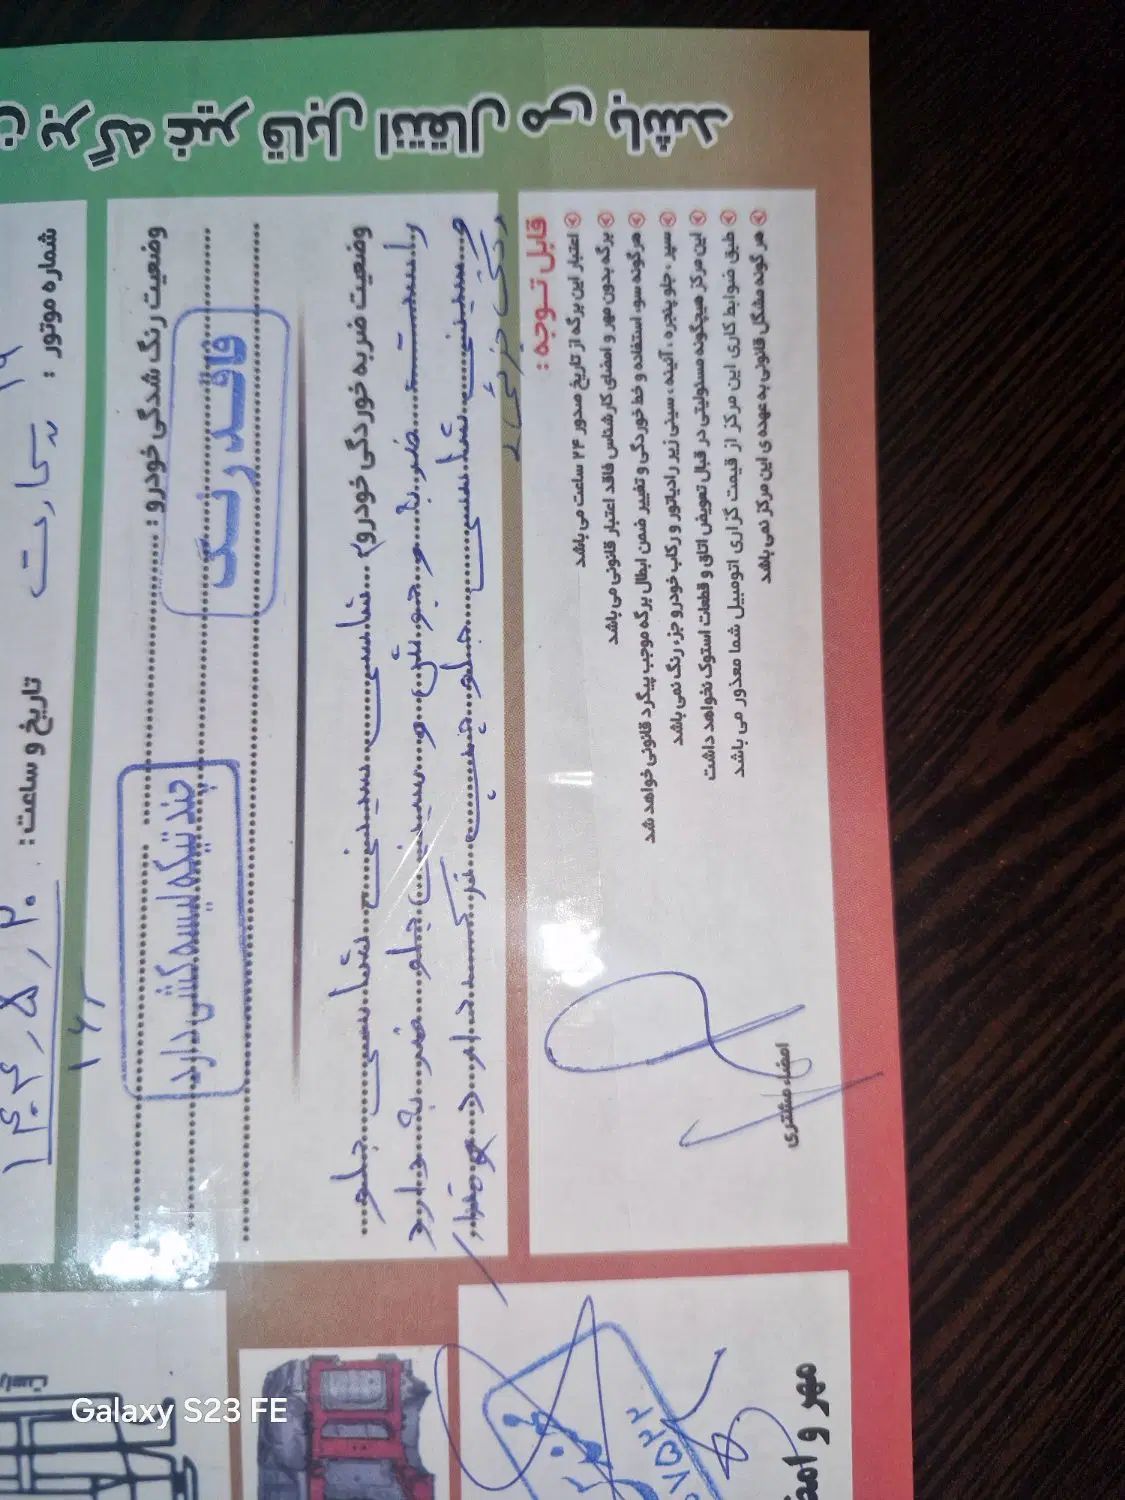 ن برگه غیر قابل انتقال می باشد
شماره موتور :
تاریخ و ساعت :
۱۴۰۴٫۵٫۲۰
وضعیت رنگ شدگی خودرو :
فاقد رنگ
چند تیکه لیسه کشی دارد
وضعیت ضربه خوردگی خودرو) شاسی سینی شاسی جلو
راست ضربه و جوش و سینی جلو ضربه دارد
سینی شاسی جلو چپ ترک دارد و مقدار
قابل توجه :
اعتبار این برگه از تاریخ صدور ۲۴ ساعت می باشد
برگه بدون مهر و امضای کارشناس فاقد اعتبار قانونی می باشد
هرگونه سوء استفاده و خط خوردگی و تغییر ضمن ابطال برگه موجب پیگرد قانونی خواهد شد
سپر ، جلو پنجره ، آئینه ، سینی زیر رادیاتور و رکاب خودرو جزء رنگ نمی باشد
این مرکز هیچگونه مسئولیتی در قبال تعویض اتاق و قطعات استوک نخواهد داشت
طبق ضوابط کاری این مرکز از قیمت گزاری اتومبیل شما معذور می باشد
هر گونه مشکل قانونی به عهده ی این مرکز نمی باشد
امضاء مشتری
مهر و امض
Galaxy S23 FE